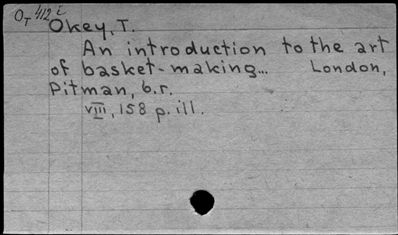 OT 412 i
Okey, T.
An introduction to the art
of basket-making... London,
Pitman, b.r.
VIII, 158 p. ill.